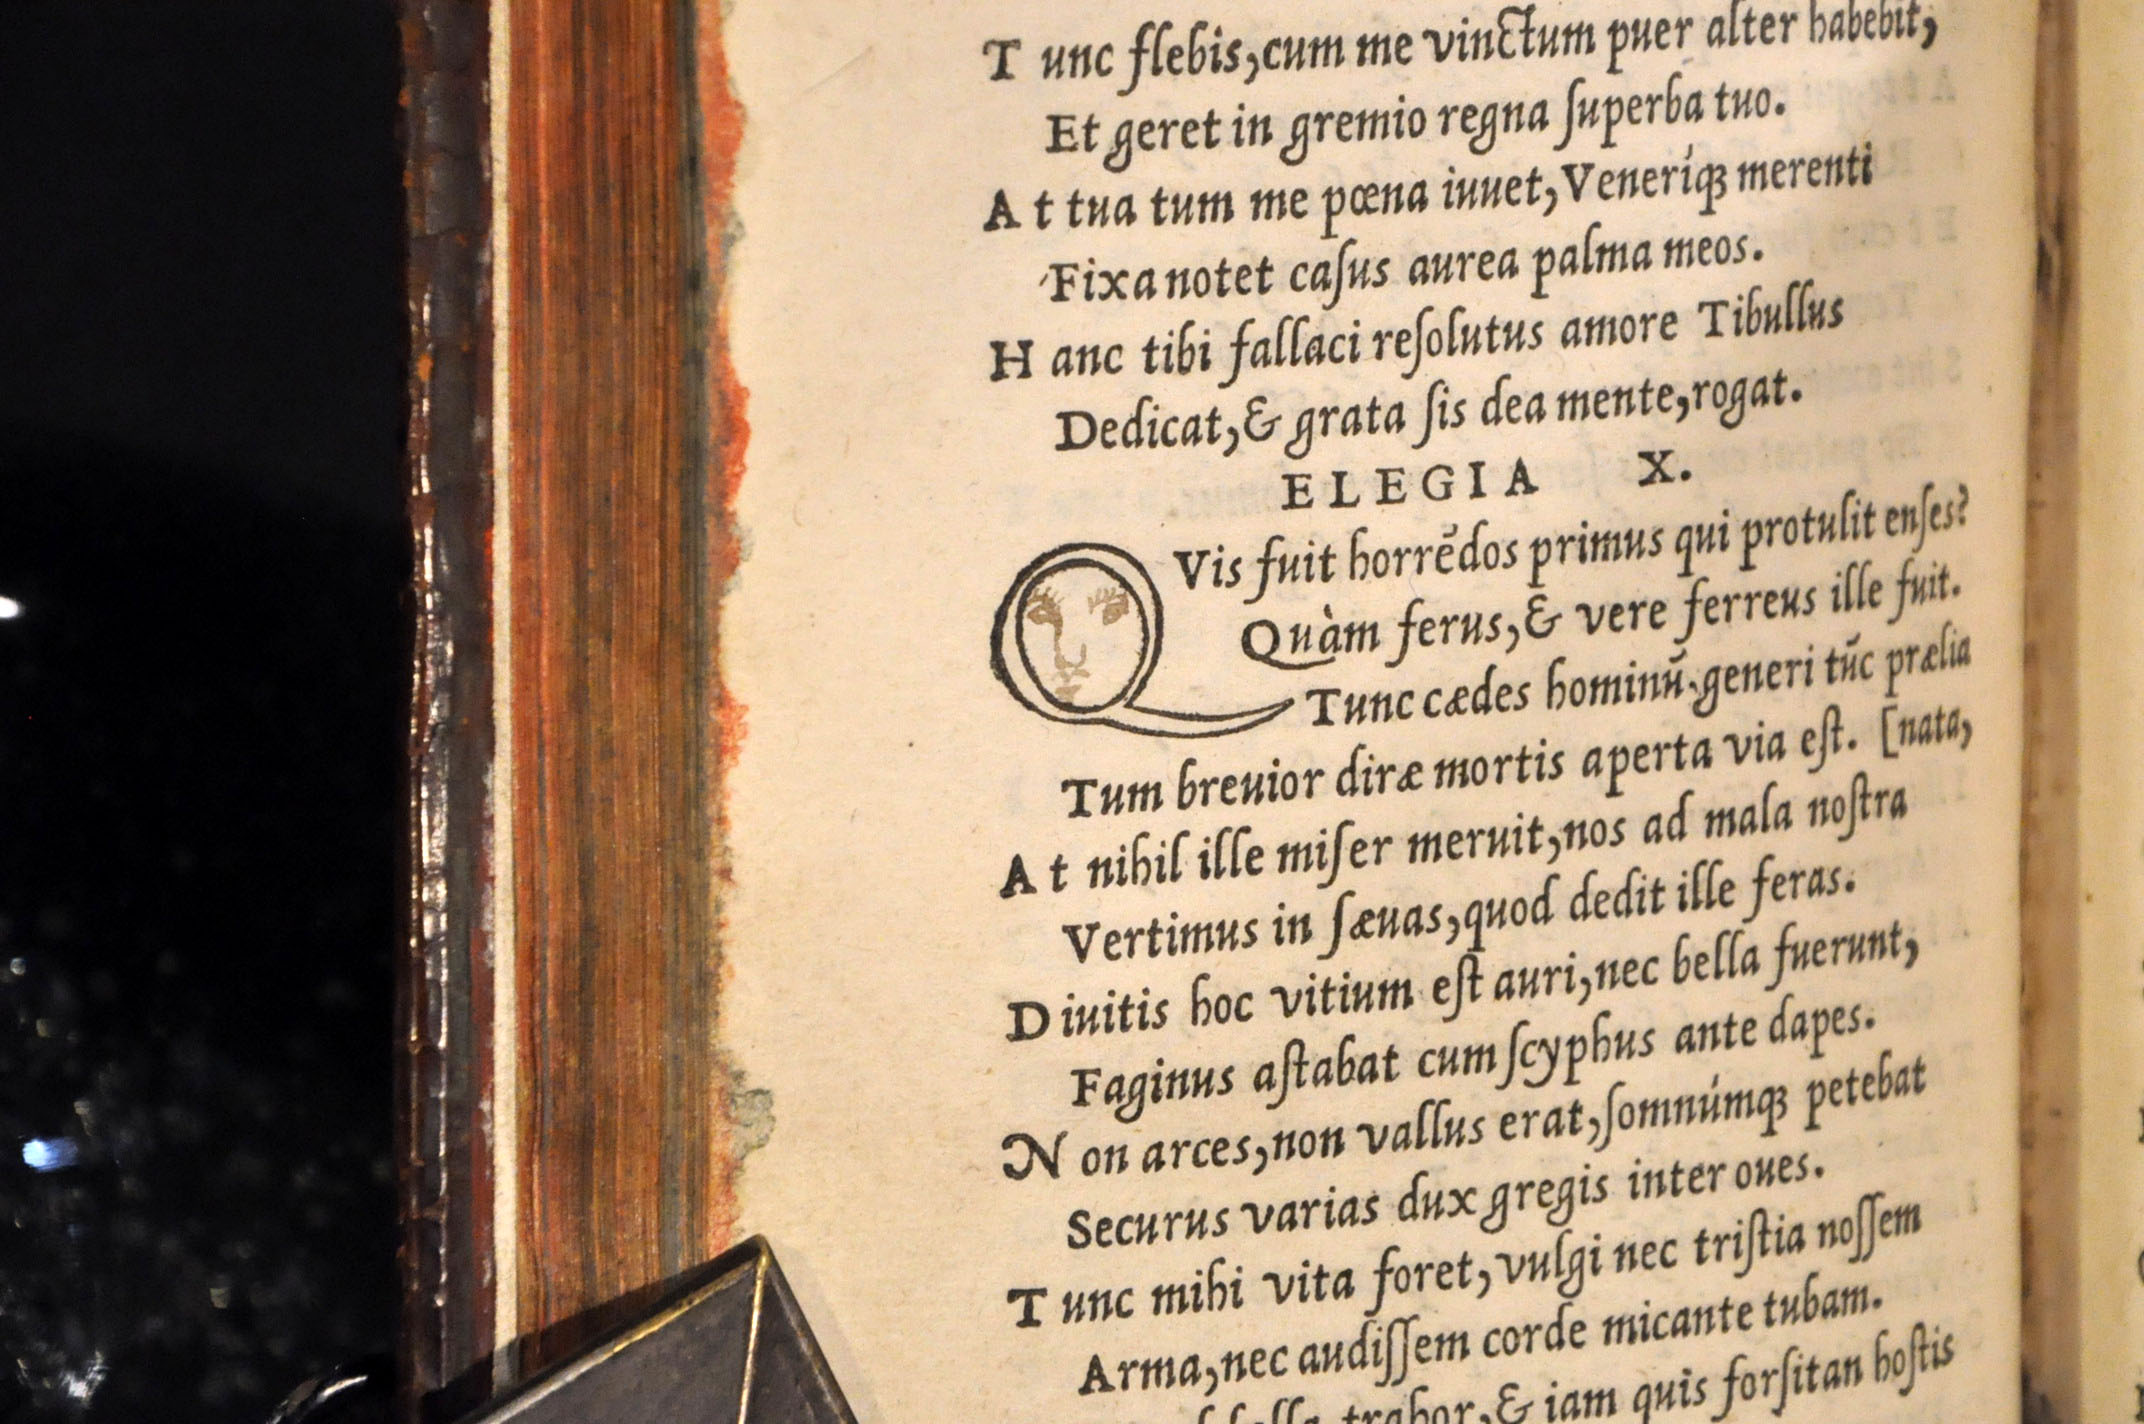 T unc flebis,cum me vinctum puer alter habebit,
Et geret in gremio regna ſuperba tuo.
A t tua tum me pœna iuuet,Veneríqꝫ merenti
Fixa notet caſus aurea palma meos.
H anc tibi fallaci reſolutus amore Tibullus
Dedicat,& grata ſis dea mente,rogat.
ELEGIA X.
QVis fuit horrēdos primus qui protulit enſes?
Quàm ferus,& vere ferreus ille fuit.
Tunc cædes hominū generi tūc prælia
Tum breuior diræ mortis aperta via eſt. [nata,
A t nihil ille miſer meruit,nos ad mala noſtra
Vertimus in ſæuas,quod dedit ille feras.
D iuitis hoc vitium eſt auri,nec bella fuerunt,
Faginus aſtabat cum ſcyphus ante dapes.
N on arces,non vallus erat,ſomnúmqꝫ petebat
Securus varias dux gregis inter oues.
T unc mihi vita foret,vulgi nec triſtia noſſem
Arma,nec audiſſem corde micante tubam.
trahor,& iam quis forſitan hoſtis